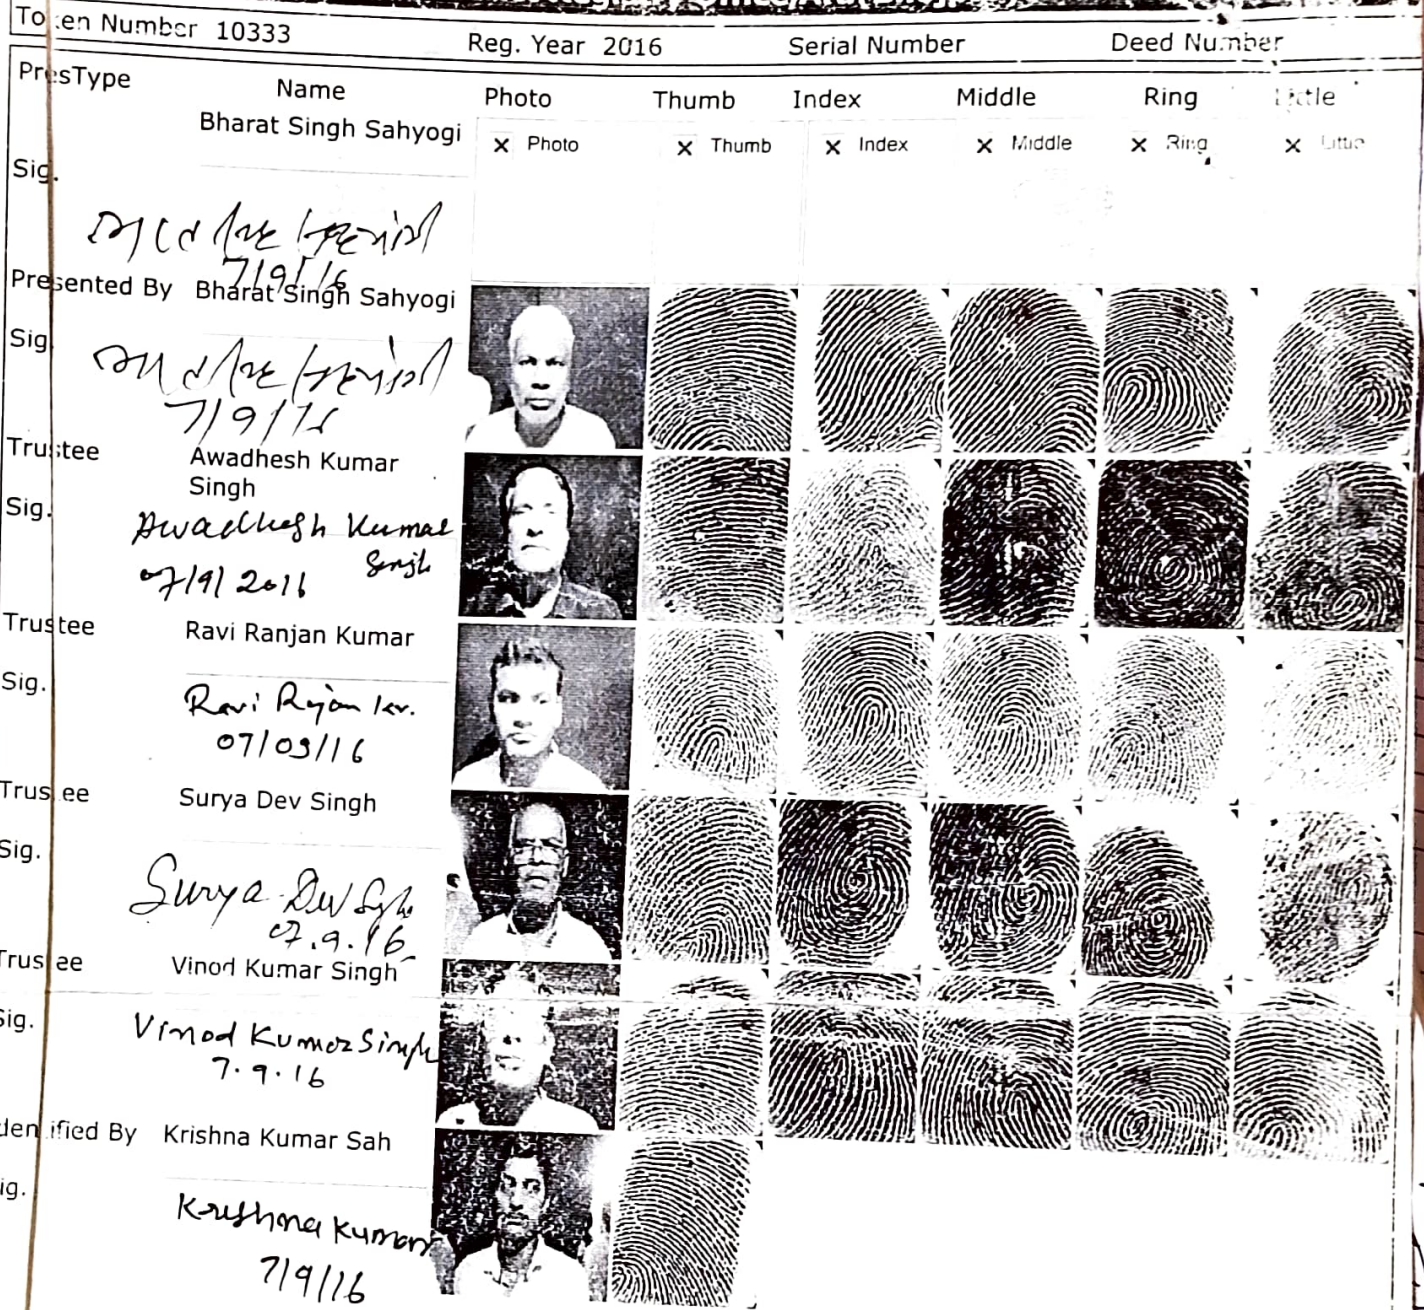 Token Number 10333 Reg. Year 2016 Serial Number Deed Number
PresType Name Photo Thumb Index Middle Ring Little
Bharat Singh Sahyogi
X Photo X Thumb X Index X Middle X Ring X Little
Sig.
भारत सिंह सहयोगी
7/9/16
Presented By Bharat Singh Sahyogi
Sig.
भारत सिंह सहयोगी
7/9/16
Trustee Awadhesh Kumar
Singh
Sig.
Awadhesh Kumar
Singh
07/9/2016
Trustee Ravi Ranjan Kumar
Sig.
Ravi Rajan kr.
07/09/16
Trustee Surya Dev Singh
Sig.
Surya Dev Sgh
07.9.16
Trustee Vinod Kumar Singh
Sig.
Vinod Kumar Singh
7.9.16
Identified By Krishna Kumar Sah
Sig.
Krishna Kumar
7/9/16